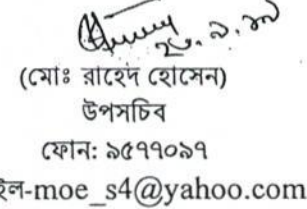 ২০.৯.১৭
(মোঃ রাহেদ হোসেন)
উপসচিব
ফোন: ৯৫৭৭০৯৭
ইল-moe_s4@yahoo.com